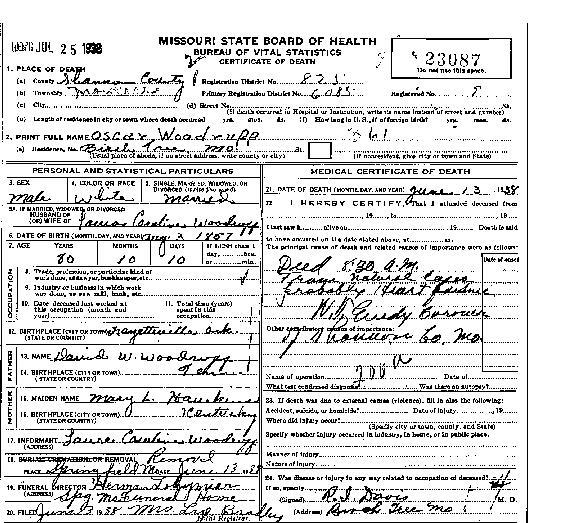 REC'D JUL 25 1938
MISSOURI STATE BOARD OF HEALTH
BUREAU OF VITAL STATISTICS
CERTIFICATE OF DEATH
23087
Do not use this space.
1. PLACE OF DEATH
(a) County Shannon County Registration District No. 825
(b) Township Primary Registration District No. 6085 Registrar's No. 8
(c) City (d) Street No.
(If death occurred in Hospital or Institution, write its name instead of street and number)
(e) Length of residence in city or town where death occurred yrs. mos. ds. (f) How long in U.S., if of foreign birth? yrs. mos. ds.
2. PRINT FULL NAME Oscar Woodrupp
(a) Residence, No. Birch Tree Mo. St.
(Usual place of abode, if no street address, write county or city) (If nonresident, give city or town and State)
PERSONAL AND STATISTICAL PARTICULARS
3. SEX Male
4. COLOR OR RACE White
5. SINGLE, MARRIED, WIDOWED, OR DIVORCED Married
5A. IF MARRIED, WIDOWED, OR DIVORCED
HUSBAND OF (OR) WIFE OF Caroline Woodrupp
6. DATE OF BIRTH (MONTH, DAY, AND YEAR) Aug 3 1857
7. AGE YEARS MONTHS DAYS If LESS than 1 day, hrs. or min.
80 10 10
OCCUPATION
8. Trade, profession, or particular kind of work done
9. Industry or business in which work was done, as saw mill, bank, etc.
10. Date deceased last worked at this occupation (month and year)
11. Total time (years) spent in this occupation
12. BIRTHPLACE (CITY OR TOWN) Fayetteville Ark.
(STATE OR COUNTRY)
FATHER
13. NAME David W. Woodrupp
14. BIRTHPLACE (CITY OR TOWN) Tenn
(STATE OR COUNTRY)
MOTHER
15. MAIDEN NAME Mary L. Hawkins
16. BIRTHPLACE (CITY OR TOWN) Kentucky
(STATE OR COUNTRY)
17. INFORMANT Caroline Woodrupp
(ADDRESS)
18. BURIAL, CREMATION, OR REMOVAL Removal
Springfield Mo. June 13 1938
19. FUNERAL DIRECTOR Herman Lohmeyer
(ADDRESS) Spg. Mo Funeral Home
20. FILED June 13 38 Mrs Bradley
Registrar.
MEDICAL CERTIFICATE OF DEATH
21. DATE OF DEATH (MONTH, DAY, AND YEAR) June 13 1938
22. I HEREBY CERTIFY, That I attended deceased from
19 to 19
I last saw h alive on 19 Death is said
to have occurred on the date stated above, at m.
The principal cause of death and related causes of importance were as follows:
Date of onset
Died 8:30 A.M.
From natural cause
probably Heart Failure
Coroner
Other contributory causes of importance:
of Shannon Co. Mo.
200a
Name of operation Date of
What test confirmed diagnosis? Was there an autopsy?
23. If death was due to external causes (violence), fill in also the following:
Accident, suicide, or homicide? Date of injury , 19
Where did injury occur?
(Specify city or town, county, and State)
Specify whether injury occurred in industry, in home, or in public place.
Manner of injury
Nature of injury
24. Was disease or injury in any way related to occupation of deceased?
If so, specify
(Signed) Davis M. D.
(Address) Birch Tree Mo.